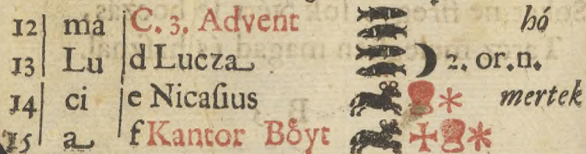 12 ma C. 3. Advent hó
13 Lu d Lucza 2. or. n.
14 ci e Nicaſius mertek
15 a f Kantor Bőyt